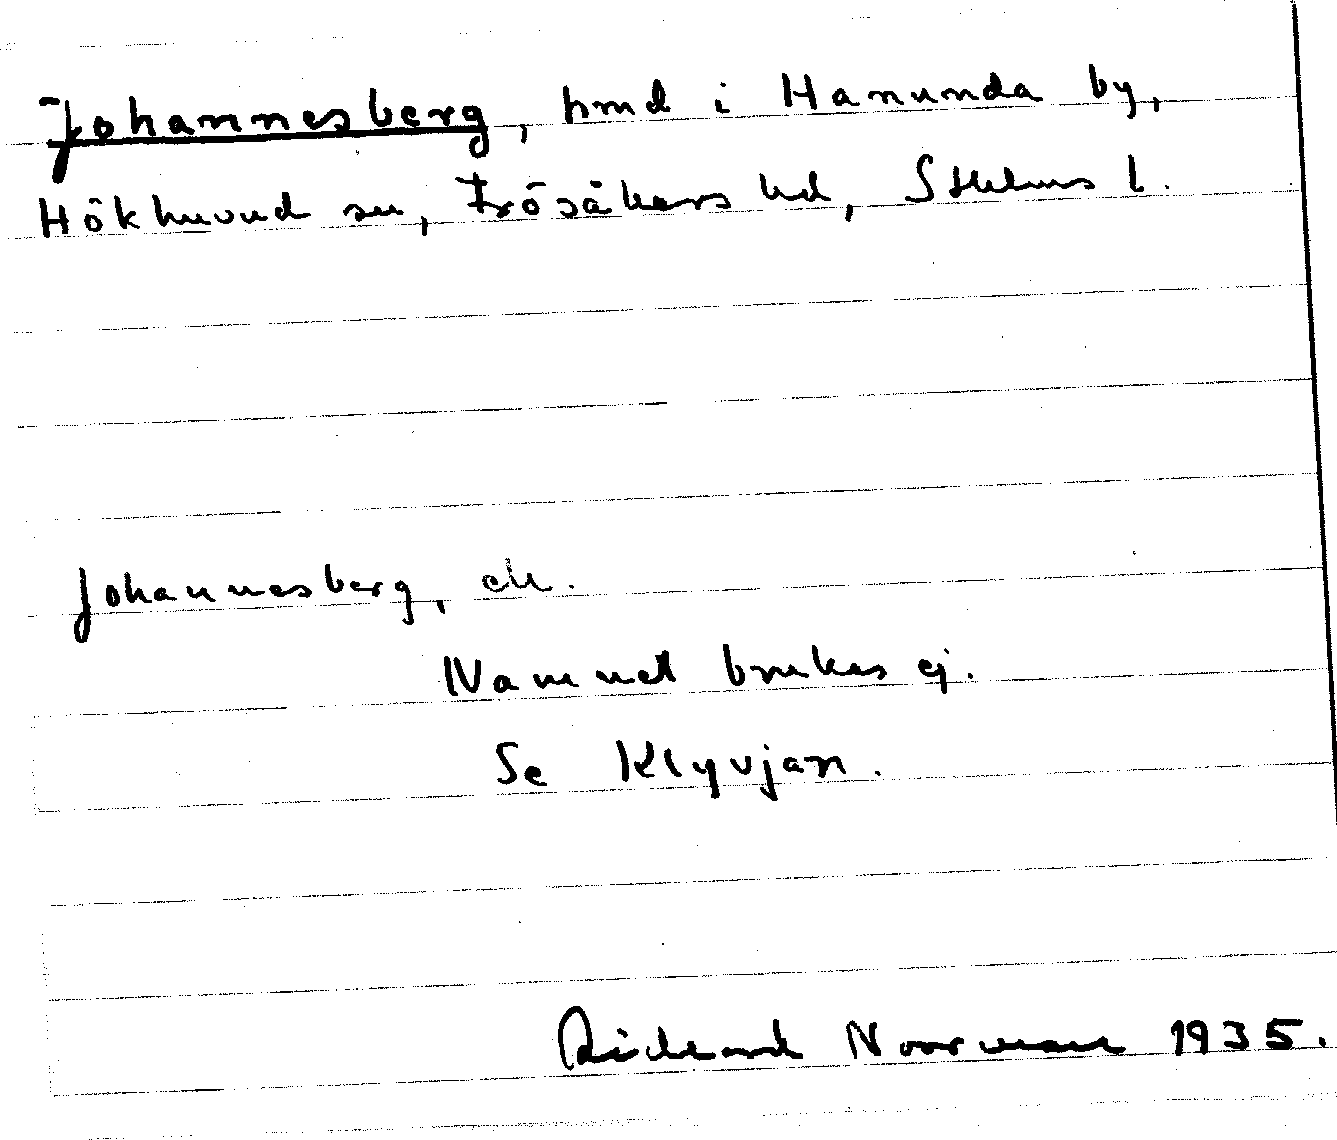 Johannesberg, hmd i Hanunda by,
Hökhuvud sn, Frösåkers hd, Sthlms l.
Johannesberg, ek.
Namnet brukas ej.
Se Klyvjan.
Rickard Noorman 1935.